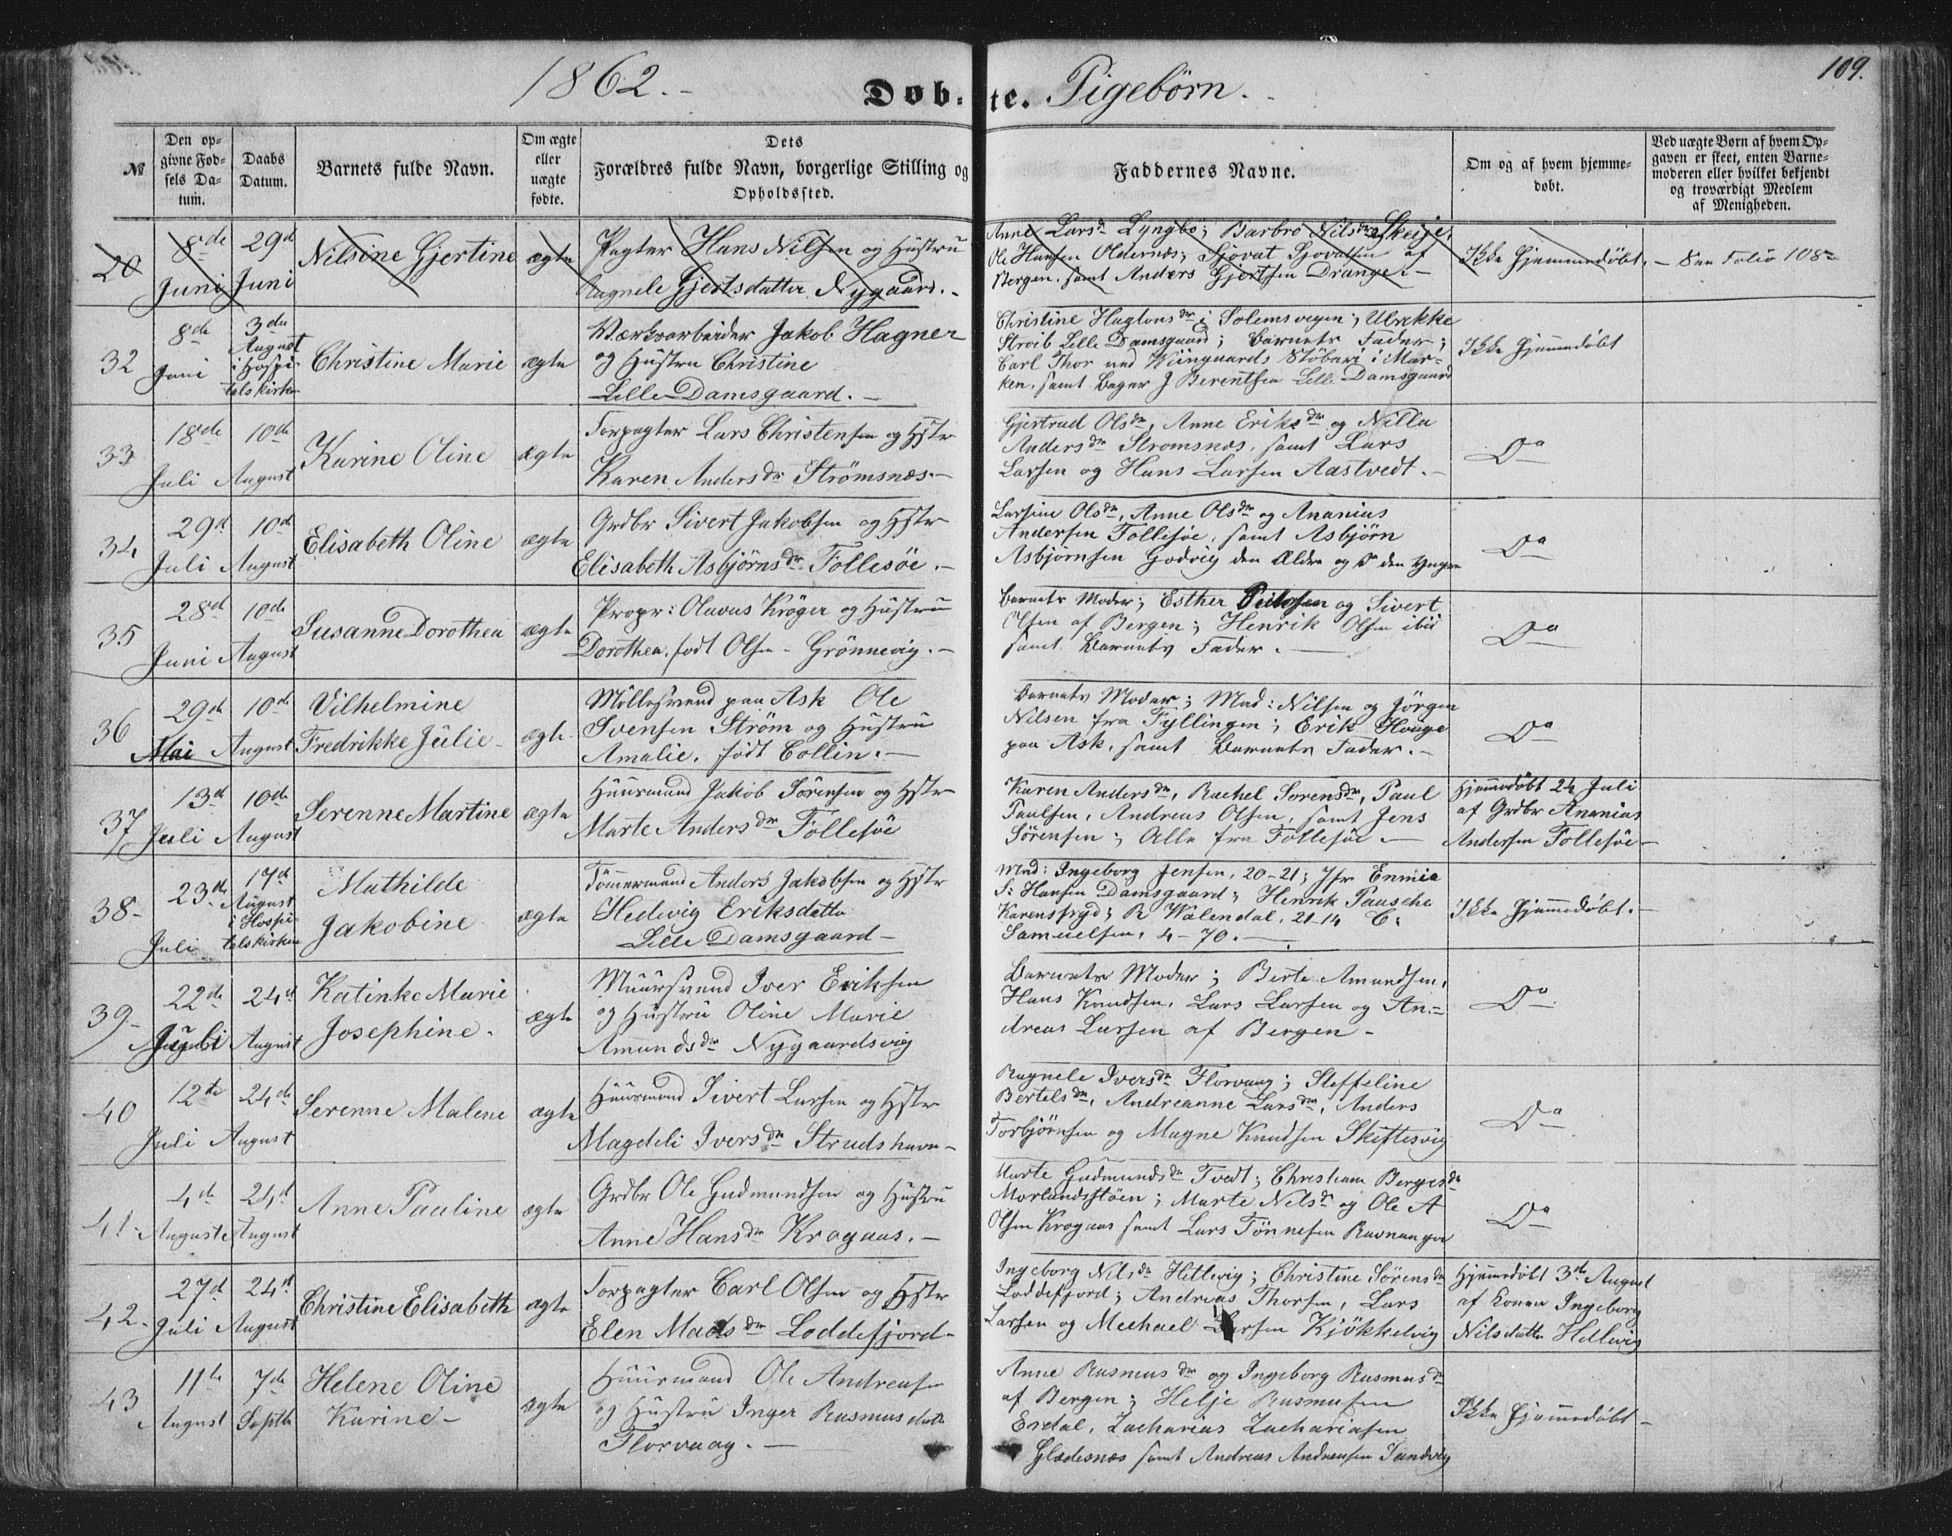 1862.-
Døb-te. Pigebørn.-
109.
№
Den op-
givne Fød-
sels Da-
tum.
Daabs
Datum.
Barnets fulde Navn.
Om ægte
eller
uægte
fødte.
Dets
Forældres fulde Navn, borgerlige Stilling og
Opholdssted.
Faddernes Navne.
Om og af hvem hjemme-
døbt.
Ved uægte Børn af hvem Op-
gaven er skeet, enten Barne-
moderen eller hvilket bekjendt
og troværdigt Medlem
af Menigheden.
20
8de
Juni
29d
Juni
Nilsine Gjertine
ægte
Pagter Hans Nilsen og Hustru
Ragnele Gjertsdatter Nygaard.-
Anne Larsdr Lyngbø; Barbro Nilsdr Skeije,
Ole Hansen Oldernæs; Sjovat Sjovatsen af
Bergen, samt Anders Gjertsen Drange.-
Ikke hjemmedøbt.- See Folio 108
32
8de
Juni
3die
August
i Hospi-
talskirken
Christine Marie
ægte
Værksarbeider Jakob Hagner
og Hustru Christine
Lille Damsgaard.-
Christine Hagtonsdr i Solemsvegen; Ulrikke
Stroib Lille Damsgaard; Barnets Fader;
Carl Thor ved Wiingaards Støberi i Mar-
ken, samt Bager J Berentsen Lille Damsgaard
Ikke hjemmedøbt
33
18de
Juli
10de
August
Karine Oline
ægte
Forpagter Lars Christensen og Hstr
Karen Andersdr Strømsnæs.-
Gjertrud Olsdr, Anne Eriksdr og Nilla
Andersdr Strømsnæs, samt Lars
Larsen og Hans Larsen Aastvedt.-
Do
34
29d
Juli
10de
August
Elisabeth Oline
ægte
Grdbr Sivert Jakobsen og Hstr
Elisabeth Asbjørnsdr Follesøe.-
Larsine Olsdr, Anne Olsdr og Ananias
Andersen Follesøe, samt Asbjørn
Asbjørnsen Godvig den Ældre og Do den Yngre
Do
35
28d
Juni
10de
August
Susanne Dorothea
ægte
Propr: Olavus Krøger og Hustru
Dorothea, født Olsen - Grønnevig.-
Barnets Moder; Esther og Sivert
Olsen af Bergen; Henrik Olsen ibid
samt Barnets Fader.-
Do
36
29de
Mai
10de
August
Vilhelmine
Fredrikke Julie-
ægte
Møllesvend paa Ask Ole
Svensen Strøm og Hustru
Amalie, født Collin.-
Barnets Moder; Mad: Nilsen og Jørgen
Nilsen fra Fyllingen; Erik Houge
paa Ask, samt Barnets Fader.-
Do
37
13d
Juli
10de
August
Serenne Martine
ægte
Huusmand Jakob Sörensen og Hstr
Marte Andersdr Follesöe
Karen Andersdr, Rachel Sorensdr, Paul
Paulsen, Andreas Olsen, samt Jens
Sørensen; Alle fra Follesøe -
Hjemmedøbt 24 Juli
af Grdbr Ananias
Andersen Follesøe-
38-
23de
Juli
17d
August
i Hospi-
talskirken
Mathilde
Jakobine
ægte
Tømmermand Anders Jakobsen og Hstr
Hedvig Eriksdatter
Lille Damsgaard-
Mad: Ingeborg Jensen, 20-21; Jfr Enmia
S: Hansen Damsgaard; Henrik Pausche
Karensfryd; R Walendal, 21-14 C:
Samuelsen, 4-70.-
Ikke hjemmedøbt.-
39-
22de
Juli
24d
August
Katinke Marie
Josephine.
ægte
Muursvend Iver Eriksen
og Hustru Oline Marie
Amundsdr Nygaardsvig
Barnets Moder; Berte Amundsen,
Hans Knudsen, Lars Larsen og An-
dreas Larsen af Bergen-
Do
40
12te
Juli
24de
August
Serenne Malene
ægte
Huusmand Sivert Larsen og Hstr
Magdeli Iversdr Strudshavn-
Ragnele Iversdr Florvaag; Steffeline
Bertelsdr, Andreanne Larsdr, Anders
Torbjørnsen og Magne Knudsen Skiftesvig
Do
41-
4de
August
24d
August
Anne Pauline
ægte
Grdbr Ole Gudmundsen og Hustru
Anne Hansdr Krogaas.-
Marte Gudmundsdr Tvedt; Christiane Bergesdr
Morlandsstöen; Marte Nilsdr og Ole A
Olsen Krogaas samt Lars Tönnesen Ravnanger
Do
42-
27d
Juli
24d
August
Christine Elisabeth
ægte
Forpagter Carl Olsen og Hstr
Elen Madsdr Loddefjord-
Ingeborg Nilsdr Hetlevig; Christine Sørensdr
Loddefjord; Andreas Thorsen, Lars
Larsen og Mechael Larsen Kjøkkelvig
Hjemmedøbt 3de August
af Konen Ingeborg
Nilsdatter Hetlevig
43
11te
August
7de
Septbr
Helene Oline
Karine-
ægte
Huusmand Ole Andreasen
og Hustru Inger Rasmusdatr
Florvaag.-
Anne Rasmusdr og Ingeborg Rasmusdr
af Bergen; Helje Rasmusen
Erdal, Zacharias Zachariasen
Glædesnæs samt Andreas Andreasen Sandvig
Ikke hjemmedøbt-